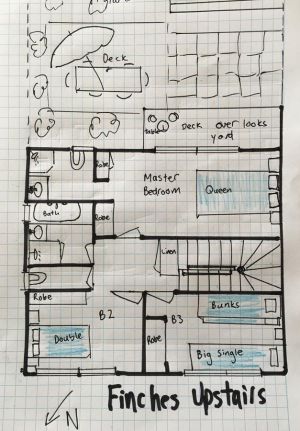 Deck
Table
Deck over looks
yard
Robe
Master
Bedroom
Queen
Bath
Robe
Linen
Robe
B2
Bunks
B3
Double
Robe
Big Single
Finches Upstairs
N